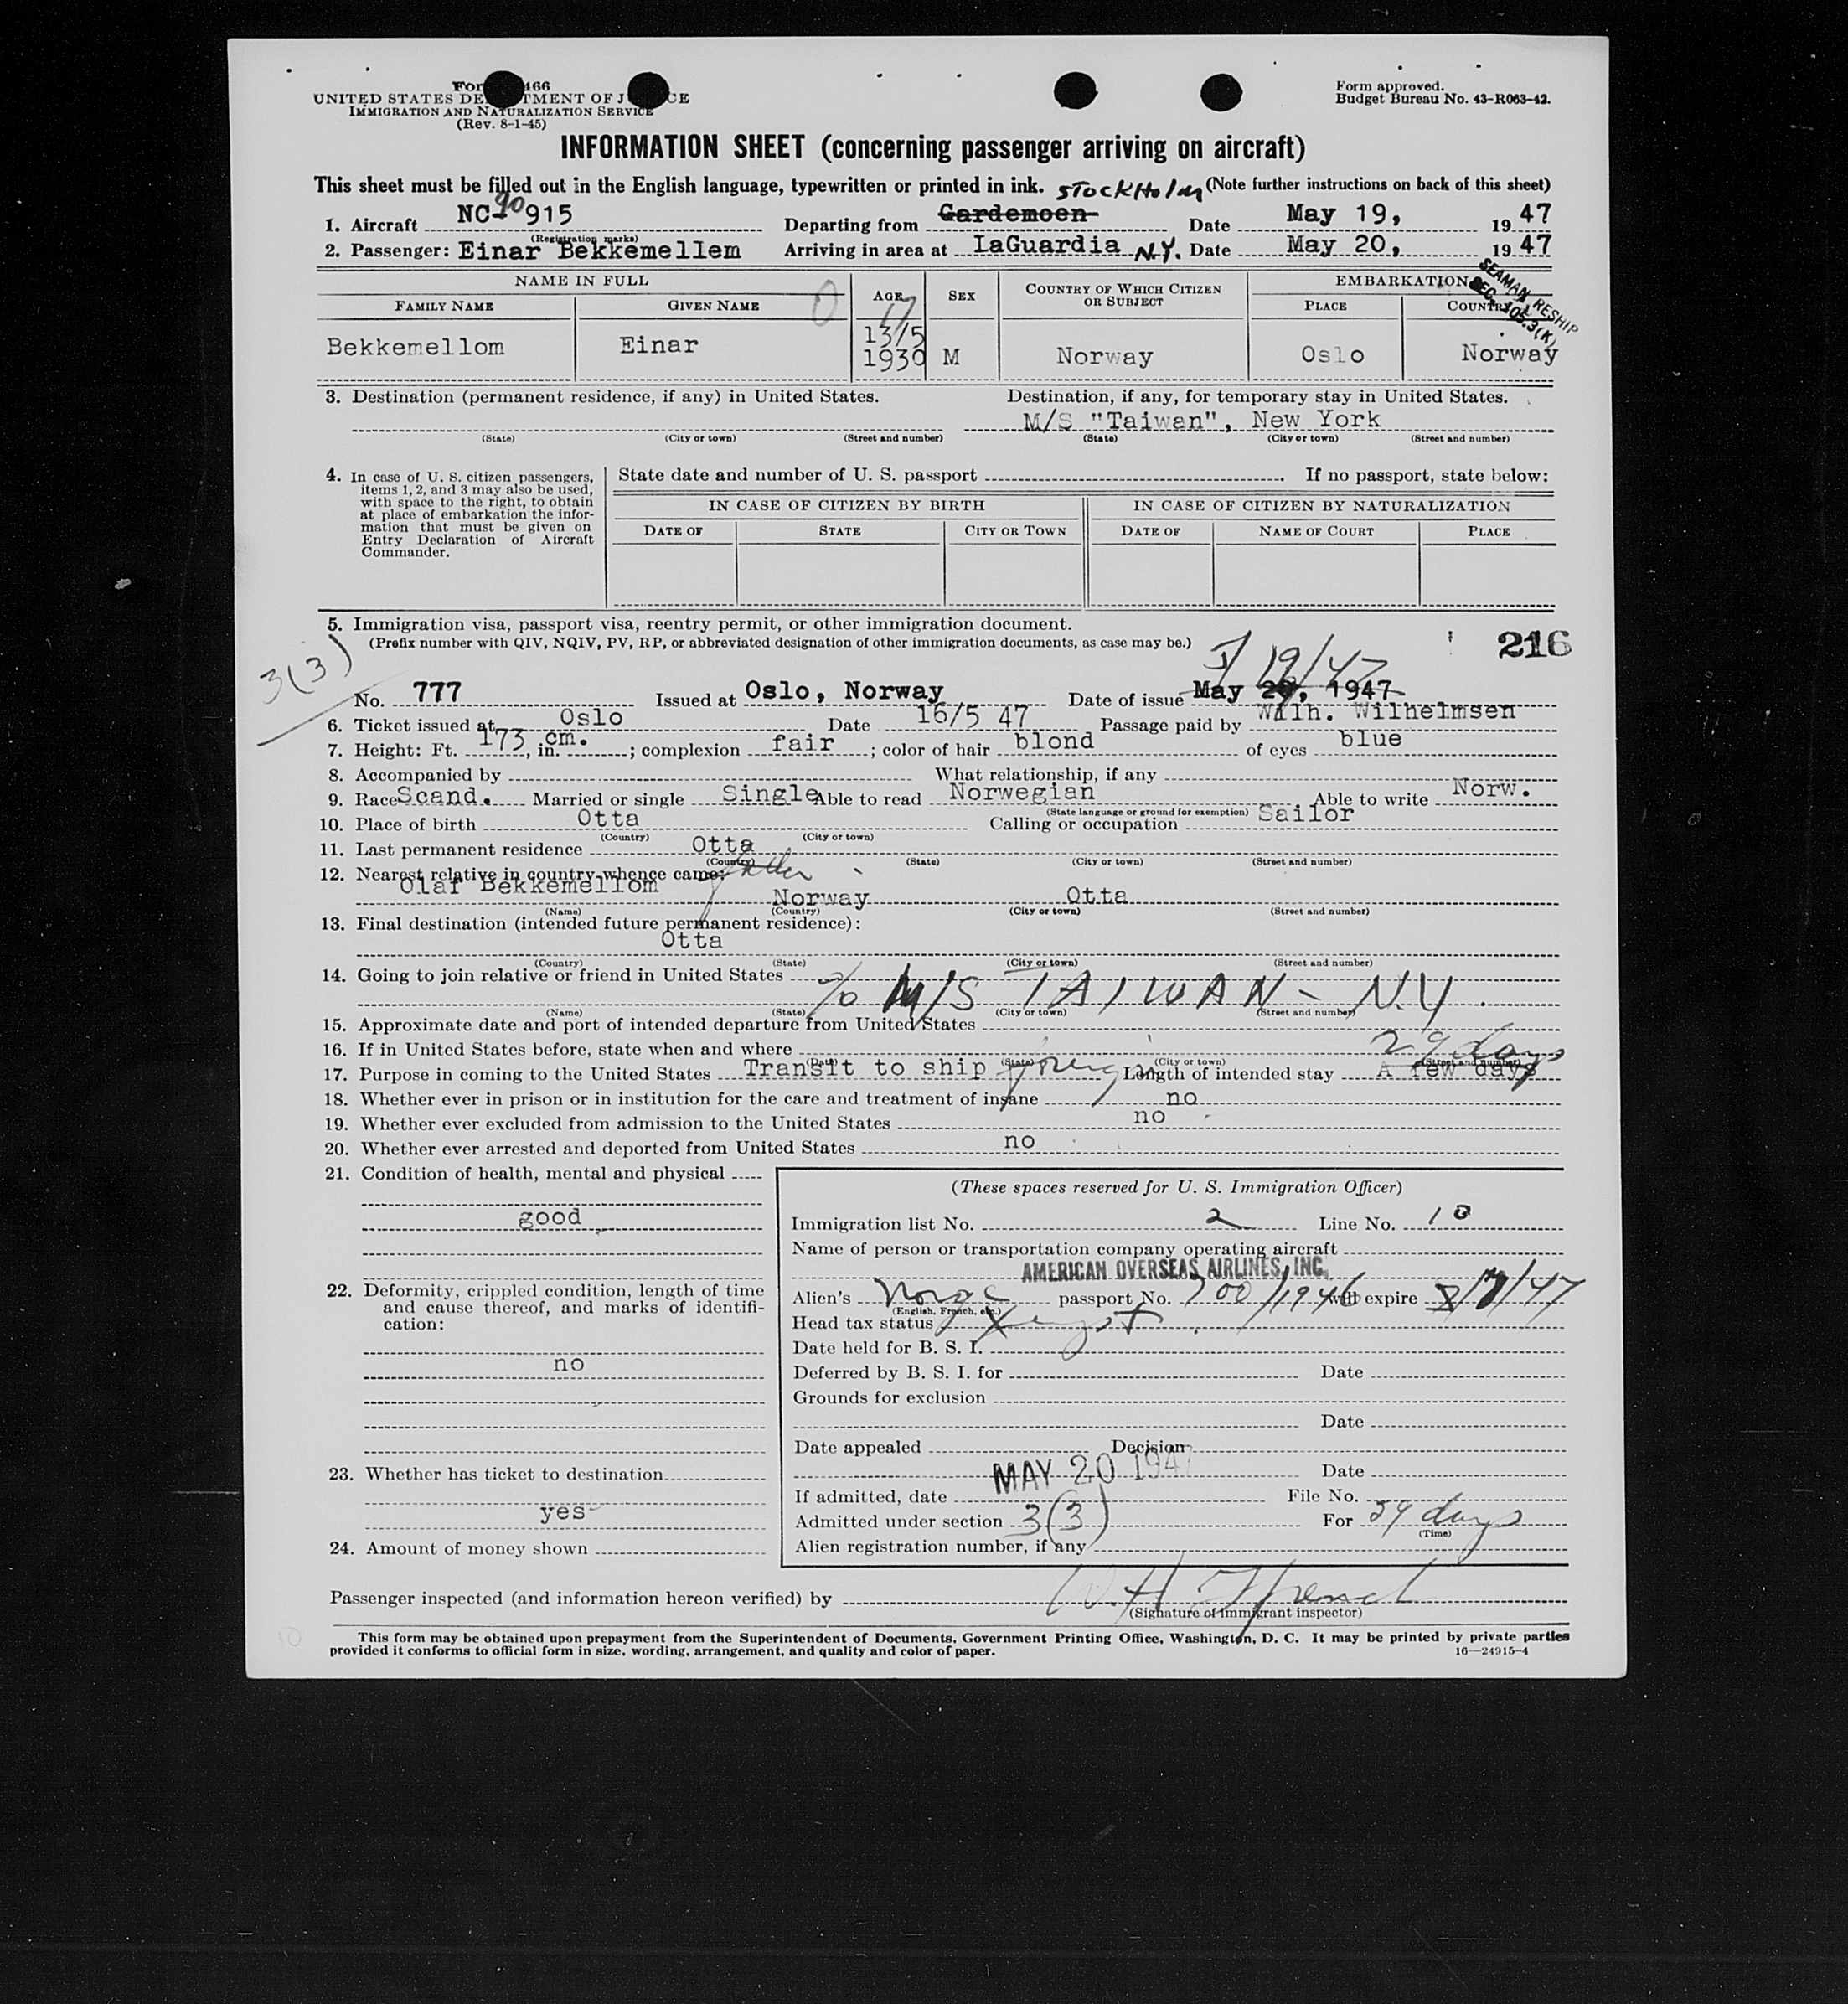 For 466
UNITED STATES DE TMENT OF J CE
IMMIGRATION AND NATURALIZATION SERVICE
(Rev. 8-1-45)
Form approved.
Budget Bureau No. 43-R063-42.
INFORMATION SHEET (concerning passenger arriving on aircraft)
This sheet must be filled out in the English language, typewritten or printed in ink. STOCKHOLM (Note further instructions on back of this sheet)
1. Aircraft NC-90915 Departing from Gardemoen Date May 19, 1947
(Registration marks)
2. Passenger: Einar Bekkemellem Arriving in area at LaGuardia N.Y. Date May 20, 1947
SEAMAN RESHIP
SEC. 105.3(K)
NAME IN FULL AGE SEX COUNTRY OF WHICH CITIZEN OR SUBJECT EMBARKATION
FAMILY NAME GIVEN NAME PLACE COUNTRY
17
Bekkemellom Einar 13/5 1930 M Norway Oslo Norway
3. Destination (permanent residence, if any) in United States. Destination, if any, for temporary stay in United States.
M/S "Taiwan", New York
(State) (City or town) (Street and number) (State) (City or town) (Street and number)
4. In case of U. S. citizen passengers, items 1, 2, and 3 may also be used, with space to the right, to obtain at place of embarkation the information that must be given on Entry Declaration of Aircraft Commander.
State date and number of U. S. passport . If no passport, state below:
IN CASE OF CITIZEN BY BIRTH IN CASE OF CITIZEN BY NATURALIZATION
DATE OF STATE CITY OR TOWN DATE OF NAME OF COURT PLACE
5. Immigration visa, passport visa, reentry permit, or other immigration document.
(Prefix number with QIV, NQIV, PV, RP, or abbreviated designation of other immigration documents, as case may be.)
216
3(3)
19/47
No. 777 Issued at Oslo, Norway Date of issue May 20, 1947
6. Ticket issued at Oslo Date 16/5 47 Passage paid by Wilh. Wilhelmsen
7. Height: Ft. 173, in. cm. ; complexion fair ; color of hair blond of eyes blue
8. Accompanied by What relationship, if any
9. Race Scand. Married or single Single Able to read Norwegian, Able to write Norw.
(State language or ground for exemption)
10. Place of birth Otta Calling or occupation Sailor
(Country) (City or town)
11. Last permanent residence Otta
(Country) (State) (City or town) (Street and number)
12. Nearest relative in country whence came: father
Olaf Bekkemellom Norway Otta
(Name) (Country) (City or town) (Street and number)
13. Final destination (intended future permanent residence):
Otta
(Country) (State) (City or town) (Street and number)
14. Going to join relative or friend in United States
% M/S TAIWAN - N.Y.
(Name) (State) (City or town) (Street and number)
15. Approximate date and port of intended departure from United States
16. If in United States before, state when and where
(Date) (State) (City or town) (Street and number)
29 days
17. Purpose in coming to the United States Transit to ship foreign Length of intended stay A few days
18. Whether ever in prison or in institution for the care and treatment of insane no
19. Whether ever excluded from admission to the United States no
20. Whether ever arrested and deported from United States no
21. Condition of health, mental and physical
good
22. Deformity, crippled condition, length of time and cause thereof, and marks of identification:
no
23. Whether has ticket to destination
yes
24. Amount of money shown
(These spaces reserved for U. S. Immigration Officer)
Immigration list No. 2 Line No. 10
Name of person or transportation company operating aircraft
AMERICAN OVERSEAS AIRLINES, INC.
Alien's passport No. 700/1946 will expire 8/7/47
(English, French, etc.)
Head tax status
Date held for B. S. I.
Deferred by B. S. I. for Date
Grounds for exclusion
Date
Date appealed Decision
Date
If admitted, date MAY 20 1947 File No.
Admitted under section 3(3) For 29 days
(Time)
Alien registration number, if any
Passenger inspected (and information hereon verified) by
(Signature of immigrant inspector)
This form may be obtained upon prepayment from the Superintendent of Documents, Government Printing Office, Washington, D. C. It may be printed by private parties
provided it conforms to official form in size, wording, arrangement, and quality and color of paper.
16—24915-4